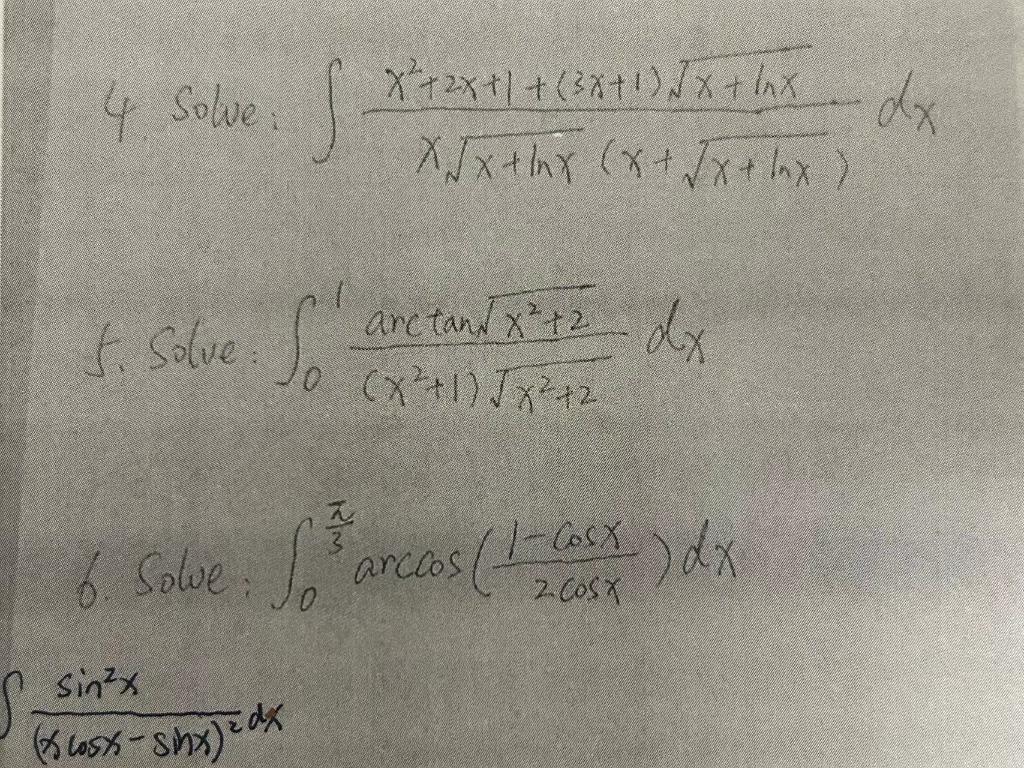 4. Solve: ∫ (x²+2x+1+(3x+1)√(x+lnx)) / (x√(x+lnx) (x+√(x+lnx))) dx
5. Solve: ∫₀¹ (arctan√(x²+2)) / ((x²+1)√(x²+2)) dx
6. Solve: ∫₀^(π/3) arccos((1-cosx)/(2cosx)) dx
∫ (sin²x) / ((x cosx - sinx)²) dx